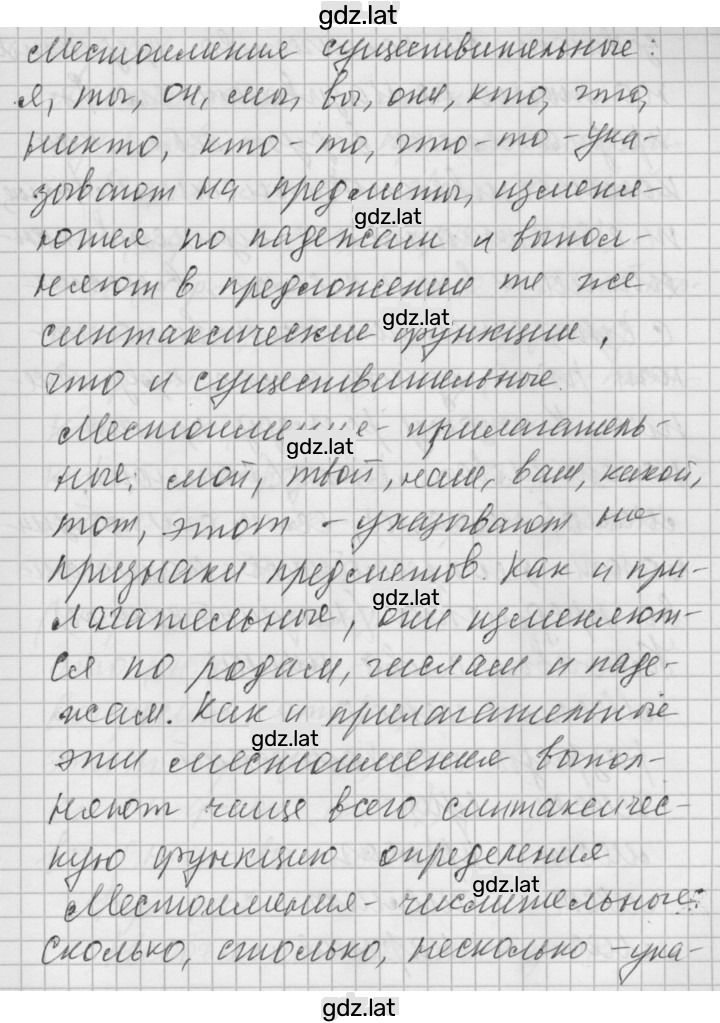 gdz.lat
Местоимения существительные:
я, ты, он, мы, вы, они, кто, что,
никто, кто-то, что-то - ука-
зывают на предметы, изменя-
gdz.lat
ются по падежам и выпол-
няют в предложении те же
gdz.lat
синтаксические функции,
что и существительные.
Местоимение - прилагатель-
gdz.lat
ные: мой, твой, наш, ваш, какой,
тот, этот - указывают на
признаки предметов. Как и при-
gdz.lat
лагательные, они изменяют-
ся по родам, числам и паде-
жам. Как и прилагательные
gdz.lat
эти местоимения выпол-
няют чаще всего синтаксичес-
кую функцию определения
gdz.lat
Местоимения - числительные:
сколько, столько, несколько - ука-
gdz.lat